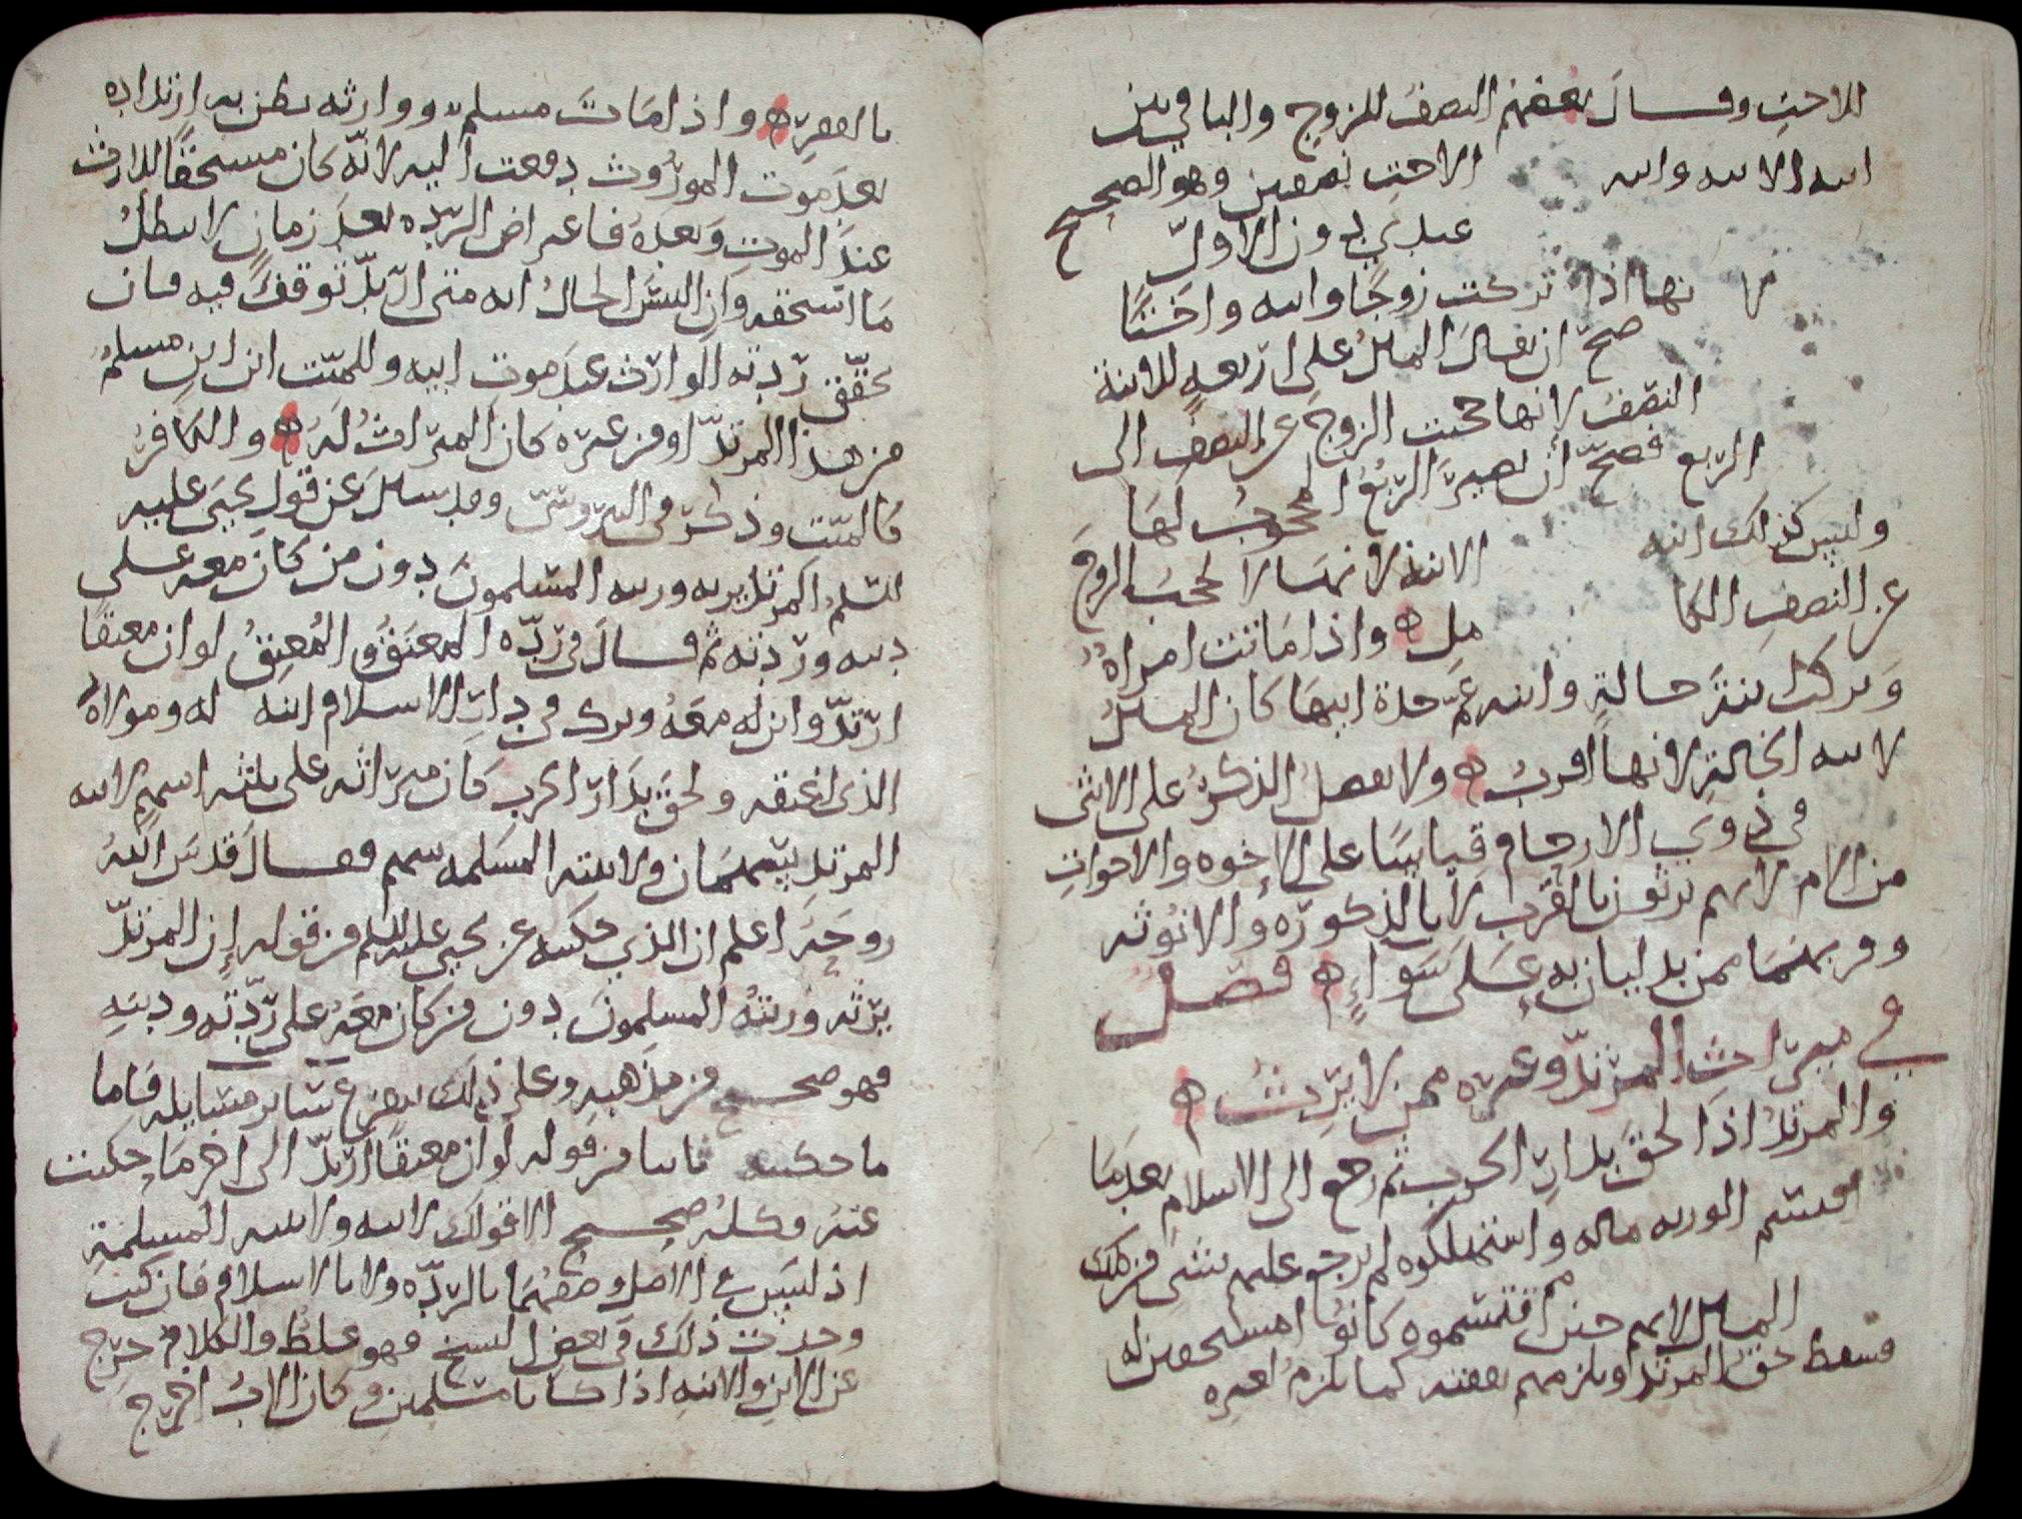 للاخت وقال بعضهم النصف للزوج والباقي بين
ابنه الابنه وابنه الاخت نصفين وهو الصحيح
عندي دون الاول
لا نها اذا تركت زوجًا وابنه واختًا
صح ان يقال المال على اربعه للابنة
النصف لانها حجبت الزوج عن النصف الى
الربع فصح ان يصير الربع المحجوب لها
وليس كذلك ابنه الابنة لانها لا تحجب الزوج
عن النصف الكامل ه واذا ماتت امراة
وتركت ابنة خالة وابنه عم جدة ابيها كان المال
لابنه الخالة لانها اقرب ه ولا يفضل الذكر على الانثى
في ذوي الارحام قياسًا على الاخوه والاخوات
من الام لانهم يرثون بالقرب لا بالذكوره والانوثه
وقربهما ممن يدليان به على سواء ه فصل
في ميراث المرتد وغيره ممن لا يرث ه
والمرتد اذا لحق بدار الحرب ثم رجع الى الاسلام بعدما
اقتسم الورثه ماله واستهلكوه لم يرجع عليهم بشي من ذلك
المال لانهم حين اقتسموه كانوا مستحقين له
فسقط حق المرتد ويلزمهم نفقته كما يلزم لغيره
بالفقر ه واذا مات مسلم ووارثه يظن به ارتداده
بعد موت الموروث دفعت اليه لانه كان مستحقًا للارث
عند الموت وبعده فاعتراض الرده بعد زمان لا يبطل
ما استحقه وان التبس الحال انه متى ارتد توقف فيه فان
تحقق ردته الوارث عند موت ابيه وللميت ابن ابن مسلم
من هذا المرتد او من غيره كان الميراث له ه والكافر
كالميت وذكر في وقد سئل عن قول يحيى عليه
السلم المرتد يرثه ورثته المسلمون دون من كان معه على
دينه وردته ثم قال في رده المعتَق والمُعتِق لو ان معتقًا
ارتد وابن له معه وترك في دار الاسلام ابنه له ومولاه
الذي اعتقه ولحق بدار الحرب كان ميراثه على ثلثه اسهم لابنه
المرتد سهمان ولابنته المسلمه سهم فقال قدس الله
روحه اعلم ان الذي حكيته عن يحيى عليه السلم من قوله إن المرتد
يرثه ورثته المسلمون دون من كان معه على ردته ودينه
فهو صحيح من مذهبه وعلى ذلك يفرع سائر مسايله فاما
ما حكيته ثانيا من قوله لو ان معتقًا ارتد الى اخر ما حكيت
عنه وكله صحيح الا قولك لابنه ولابنته المسلمة
اذ ليس في الاصل وصفهما بالرده ولا بالاسلام فان كنت
وجدت ذلك في بعض النسخ فهو غلط والكلام خرج
عن الابن والابنه اذا كانا مسلمين وكان الاب اخرج